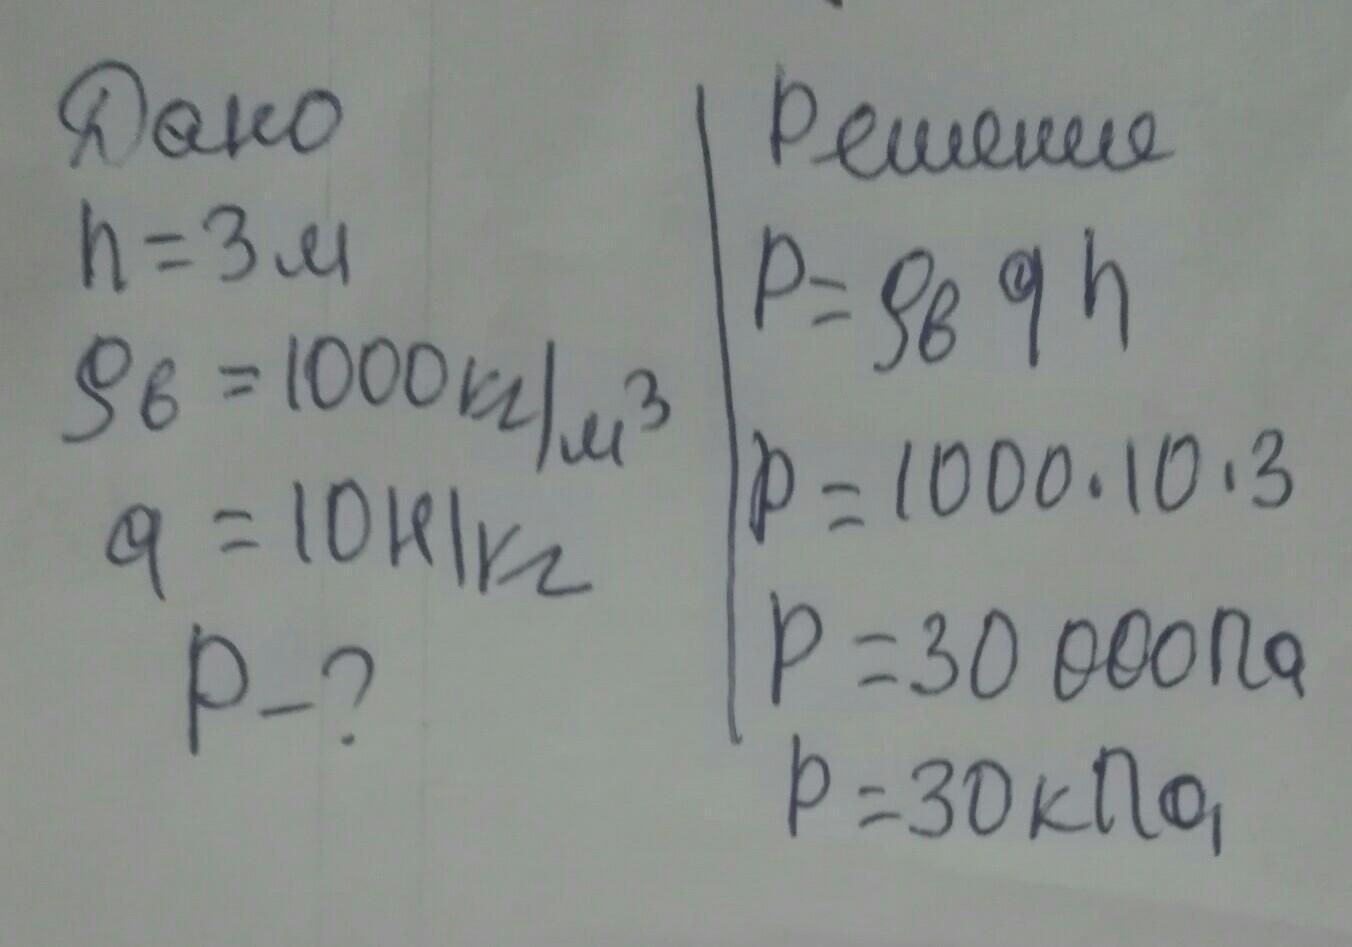 Дано
h=3м
ρв =1000кг/м³
g =10Н/кг
P-?
Решение
P= ρв g h
p=1000·10·3
P=30 000Па
P=30кПа